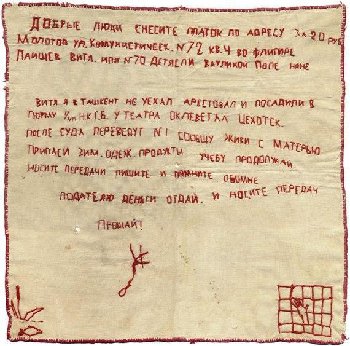 Добрые люди снесите платок по адресу за 20 руб
Молотов ул. Комунистическ. N 72 кв. 4 во флигиле
Вите. или N 70
Витя. я в Ташкент не уехал арестовал и посадили в
тюрму НКГБ. у театра оклеветал
после суда переведут N1 сообщу живи с матерью
припаси зим. одеж. продукты учебу продолжай
носите передачи пишите и помните обомне
подателю деньги отдай. и носите передач
Прощай!